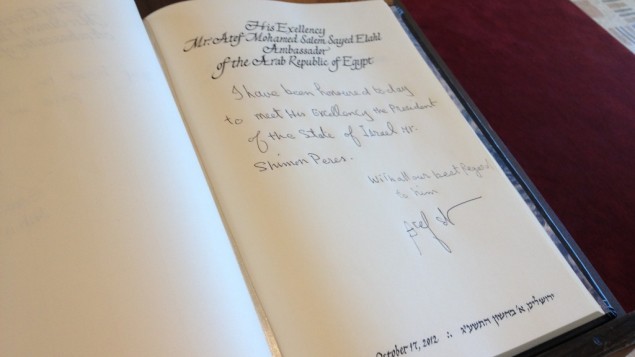 His Exellency
Mr. Atef Mohamed Salem Sayed Elahl
Ambassador
of the Arab Republic of Egypt
I have been honored today
to meet His Excellency the President
of the State of Israel Mr.
Shimon Peres.
With all our best Regard
to him
Atef
October 17, 2012 ∴ ירושלים, א' בחשון התשע"ג